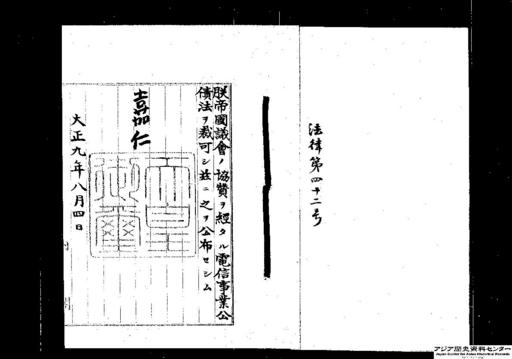 法律第四十二号
朕帝國議會ノ協賛ヲ經タル電信事業公
債法ヲ裁可シ茲ニ之ヲ公布セシム
嘉仁
天皇御璽
大正九年八月四日
アジア歴史資料センター
Japan Center for Asian Historical Records